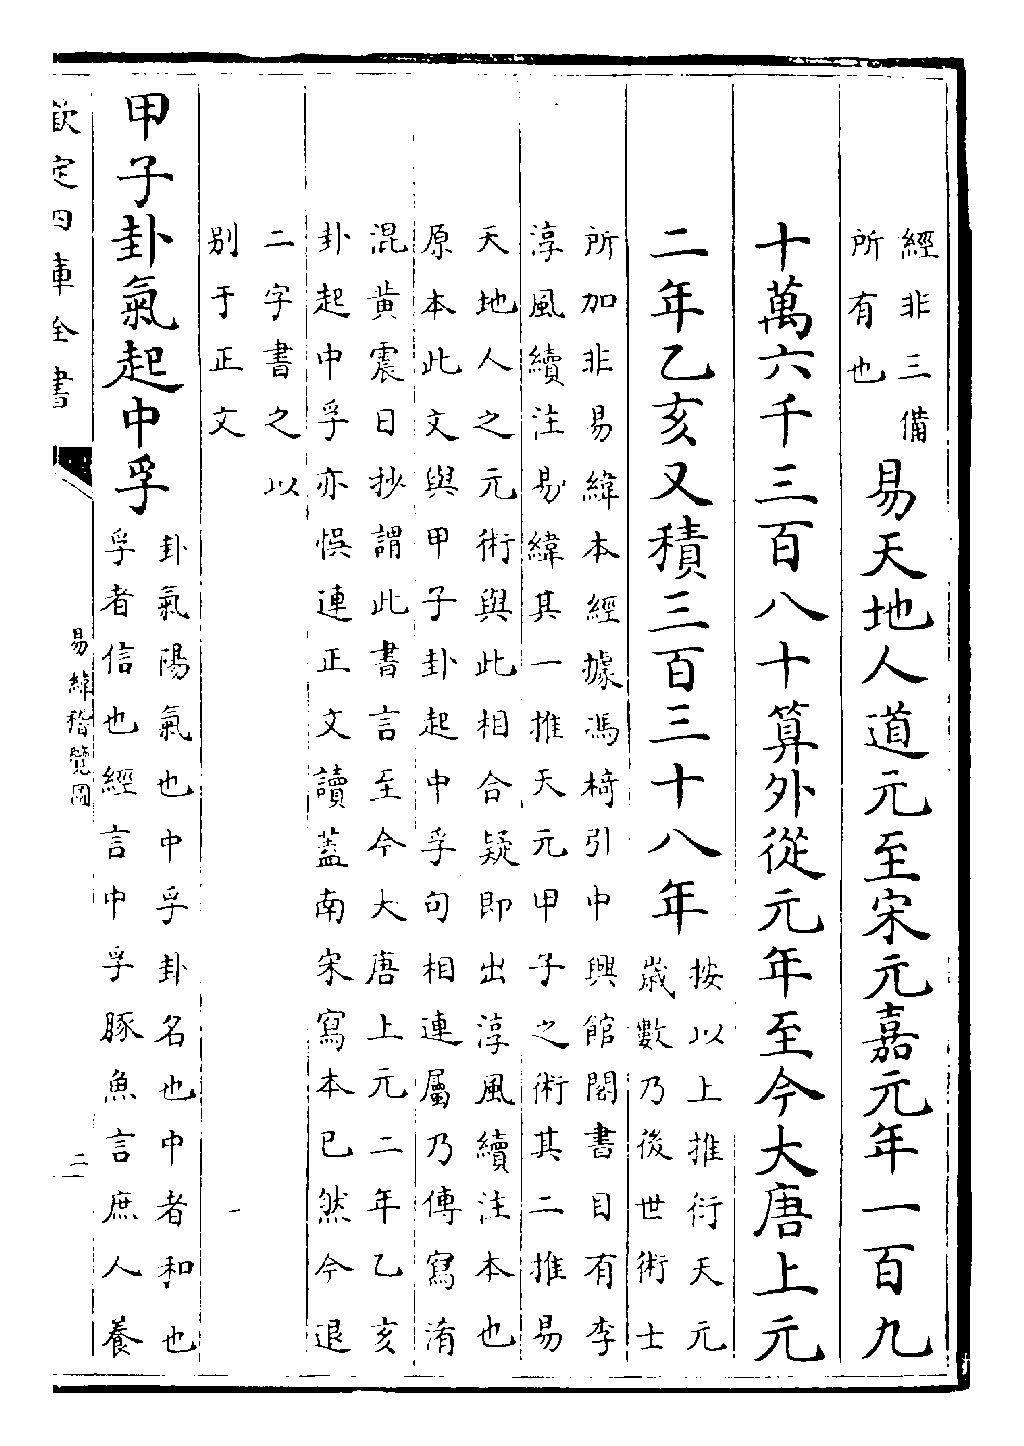 經非三備
所有也
易天地人道元至宋元嘉元年一百九
十萬六千三百八十算外從元年至今大唐上元
二年乙亥又積三百三十八年
按以上推衍天元
歲數乃後世術士
所加非易緯本經據馮椅引中興館閣書目有李
淳風續注易緯其一推天元甲子之術其二推易
天地人之元術與此相合疑即出淳風續注本也
原本此文與甲子卦起中孚句相連屬乃傳寫淆
混黄震日抄謂此書言至今大唐上元二年乙亥
卦起中孚亦悞連正文讀蓋南宋寫本已然今退
二字書之以
别于正文
甲子卦氣起中孚
卦氣陽氣也中孚卦名也中者和也
孚者信也經言中孚豚魚言庶人養
欽定四庫全書
易緯稽覽圖
二